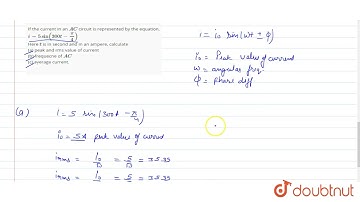 If the current in an AC circuit is represented by the equation,
i = 5 sin(300t − π/4)
Here t is in second and in an ampere. calculate
(a) peak and rms value of current
(b) frequency of AC
(c) average current.
i = i₀ sin(ωt ± φ)
i₀ = Peak value of current
ω = angular freq.
φ = phase diff
(a) i = 5 sin(300t − π/4)
i₀ = 5A peak value of current
irms = i₀/√2 = 5/√2 = 3.535
irms = i₀ = 5 = 3.535
doubtnut